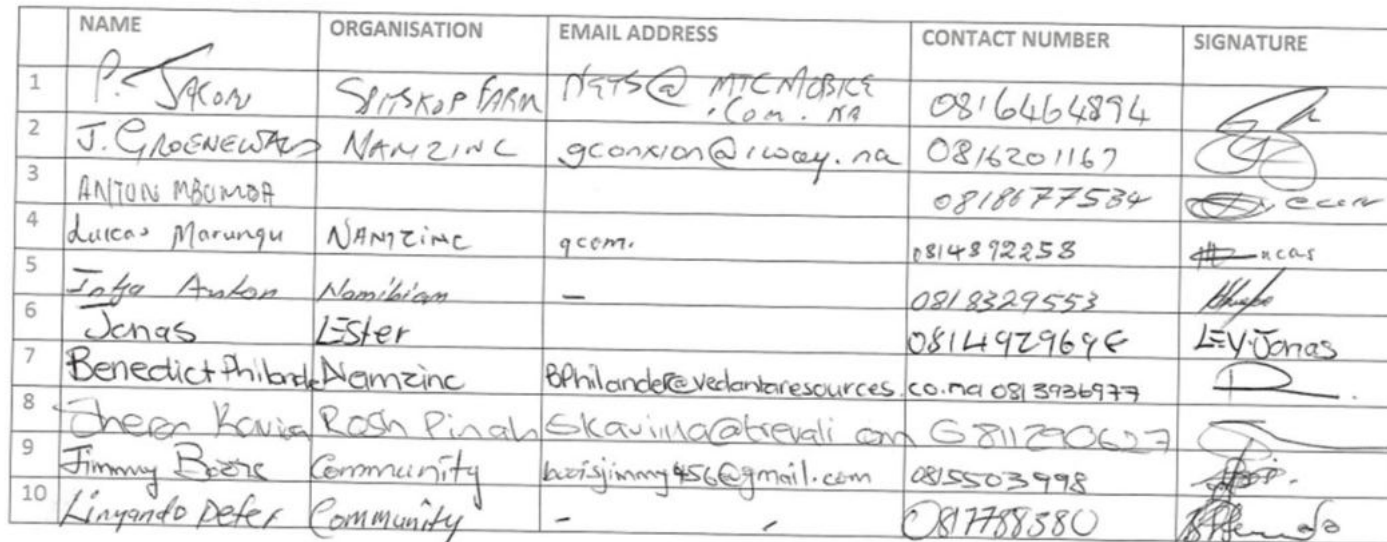 NAME ORGANISATION EMAIL ADDRESS CONTACT NUMBER SIGNATURE
1 P. SPITSKOP FARM @ MTCMOBILE
.Com. NA 0816464894
2 J. GROENEWALD NAMZINC gconxion@iway.na 0816201167
3 ANTON MBUMBA 0818677534
4 Lucas Marungu NAMZINC gcom. 0814892258 ucas
5 Anton Namibian – 0818329553
6 Jonas Lester LEV Jonas
7 Benedict Philander Namzinc BPhilander@vedantaresources.co.na 0813936977
8 Rosh Pinah
9 Jimmy Community boisjimmy456@gmail.com 0815503998
10 Linyando Peter Community - - 0817788580